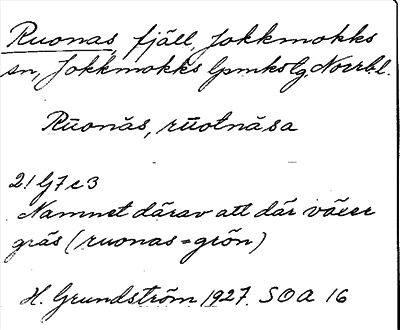 Ruonas, fjäll, Jokkmokks
sn, Jokkmokks lpmkslg, Norrb.l.
Rūonās, rūotnāsa
21 G7e3
Namnet därav att där växer
gräs (ruonas = grön)
H. Grundström 1927. SOA 16